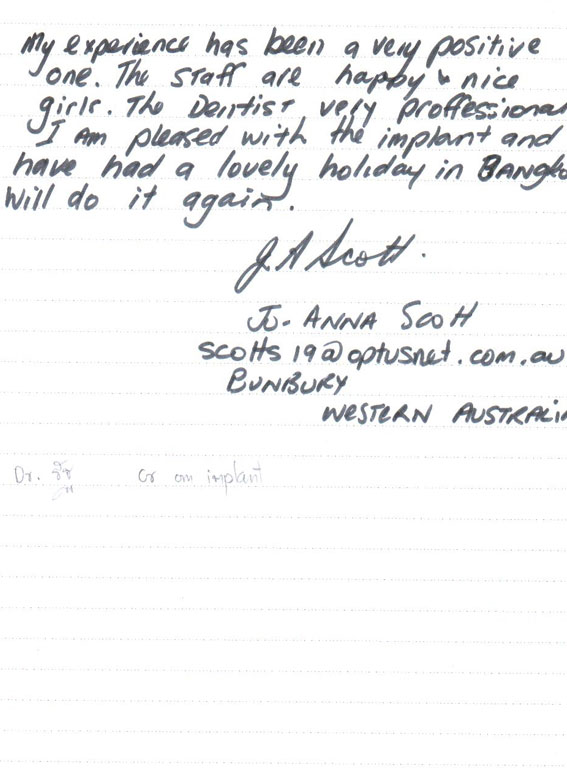 My experience has been a very positive
one. The staff are happy & nice
girls. The Dentist very proffessional
I am pleased with the implant and
have had a lovely holiday in BANGKO
Will do it again.
J A Scott.
JO-ANNA SCOTT
scotts19@optusnet.com.au
BUNBURY
WESTERN AUSTRALIA
Dr. Cr on implant